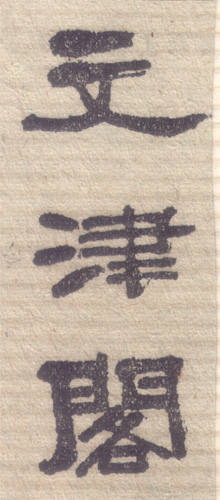 文津閣